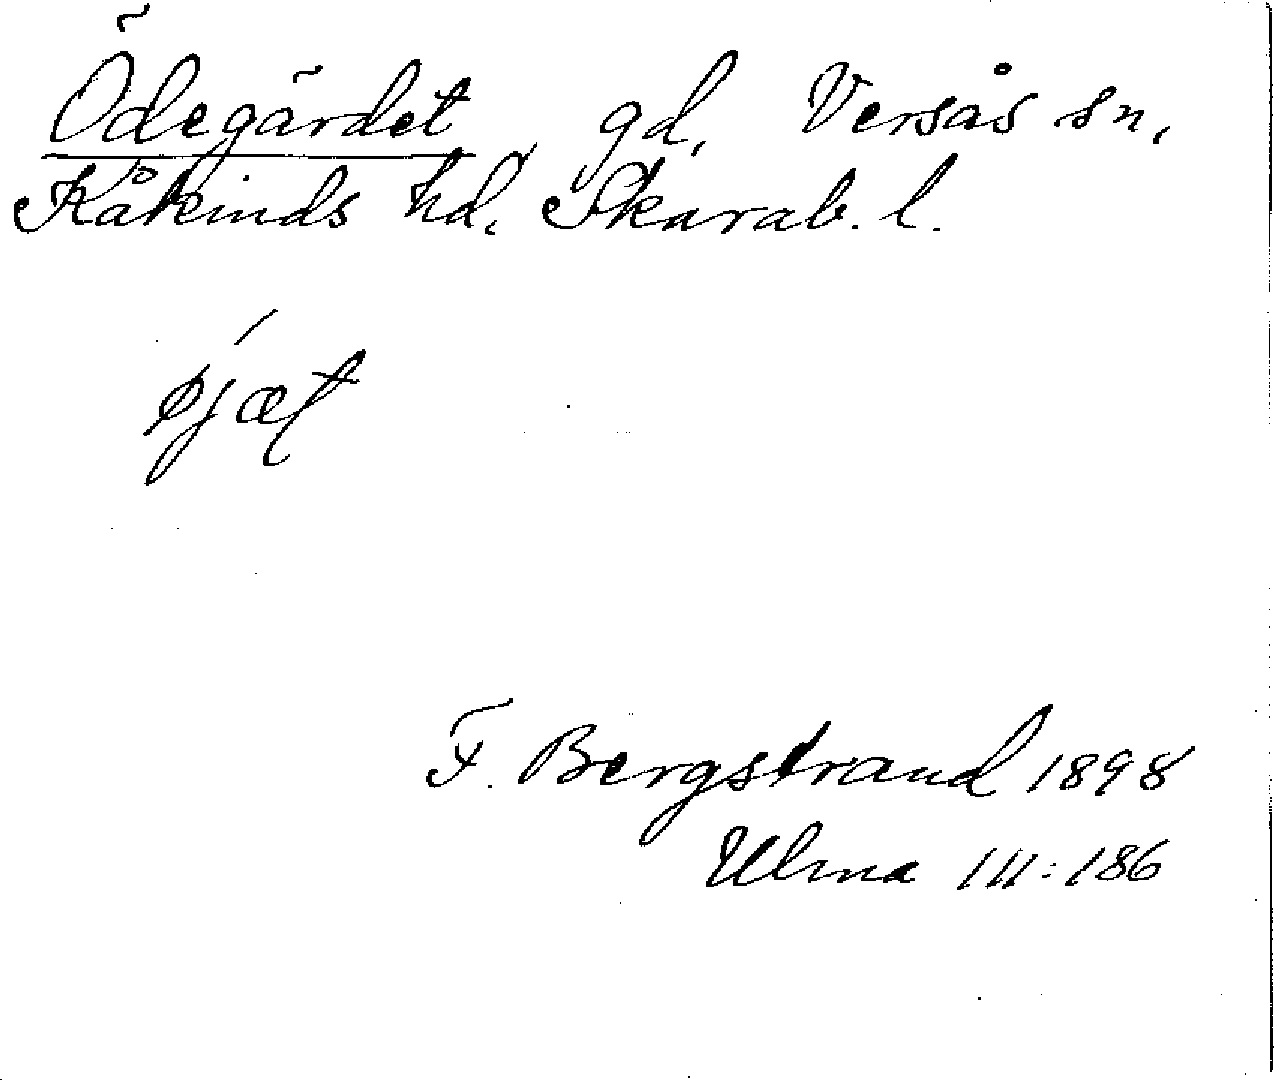 Ödegärdet, gd, Versås sn,
Kåkinds hd. Skarab. l.
øjæt
F. Bergstrand 1898
Ulma 111:186